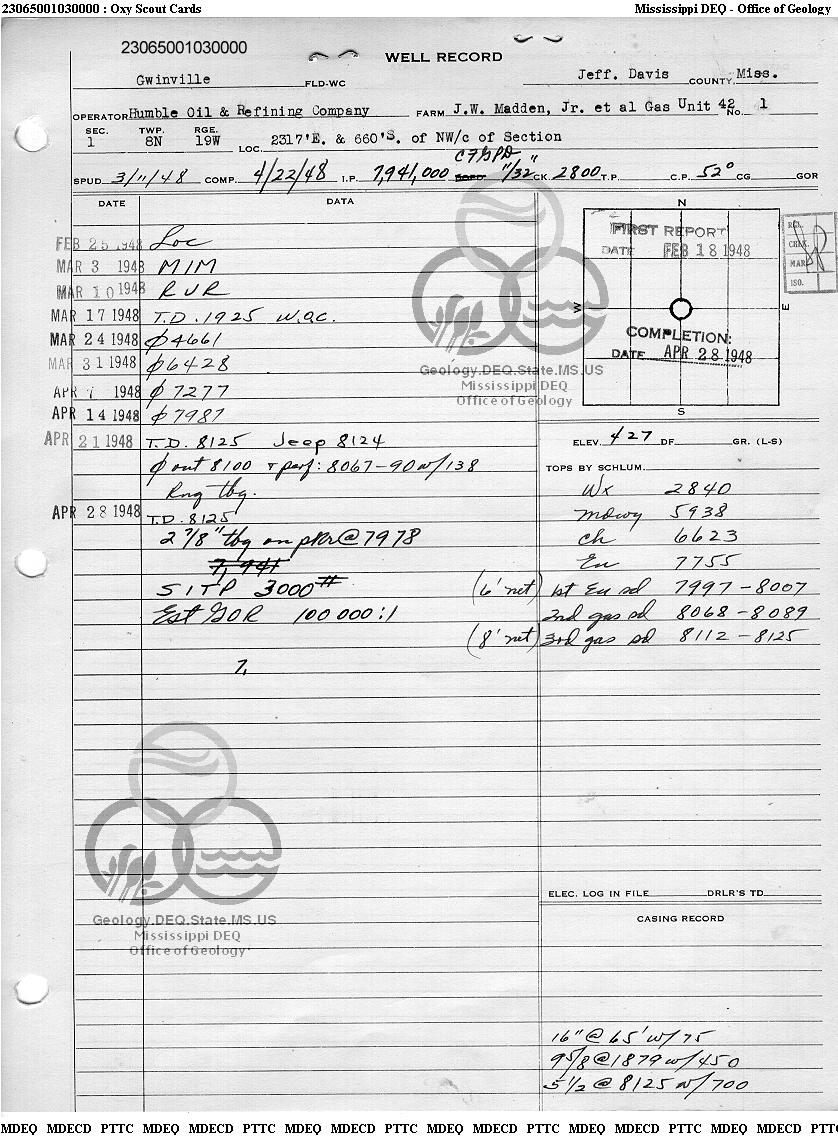 23065001030000 : Oxy Scout Cards
Mississippi DEQ - Office of Geology
23065001030000
WELL RECORD
Gwinville FLD-WC Jeff. Davis COUNTY Miss.
OPERATOR Humble Oil & Refining Company FARM J.W. Madden, Jr. et al Gas Unit 42 No. 1
SEC. TWP. RGE.
1 8N 19W LOC. 2317'E. & 660'S. of NW/c of Section
CFGPD
SPUD 3/11/48 COMP. 4/22/48 I.P. 7,941,000 11/32" CK. 2800 T.P. C.P. 52° CG GOR
DATE DATA
FEB 25 1948 Loc
MAR 3 1948 MIM
MAR 10 1948 RUR
MAR 17 1948 T.D. 1925 W.O.C.
MAR 24 1948 ϕ 4661
MAR 31 1948 ϕ 6428
APR 7 1948 ϕ 7277
APR 14 1948 ϕ 7987
APR 21 1948 T.D. 8125 Jeep 8124
ϕ out 8100 + perf: 8067-90 w/138
Rng tbg.
APR 28 1948 T.D. 8125
2 7/8" tbg on pkr @ 7978
7,941
SITP 3000#
Est GOR 100 000:1
7,
N
FIRST REPORT
DATE FEB 18 1948
W E
COMPLETION:
DATE APR 28 1948
S
REG.
CHEK.
MAR.
ISO.
ELEV. 427 DF GR. (L-S)
TOPS BY SCHLUM.
Wx 2840
Mdwy 5938
Ch 6623
Eu 7755
(6' net) 1st Eu sd 7997-8007
2nd gas sd 8068-8089
(8' net) 3rd gas sd 8112-8125
Geology.DEQ.State.MS.US
Mississippi DEQ
Office of Geology
Geology.DEQ.State.MS.US
Mississippi DEQ
Office of Geology
ELEC. LOG IN FILE DRLR'S TD
CASING RECORD
16" @ 65' w/75
9 5/8 @ 1879 w/450
5 1/2 @ 8125 w/700
MDEQ MDECD PTTC MDEQ MDECD PTTC MDEQ MDECD PTTC MDEQ MDECD PTTC MDEQ MDECD PTTC MDEQ MDECD PTTC